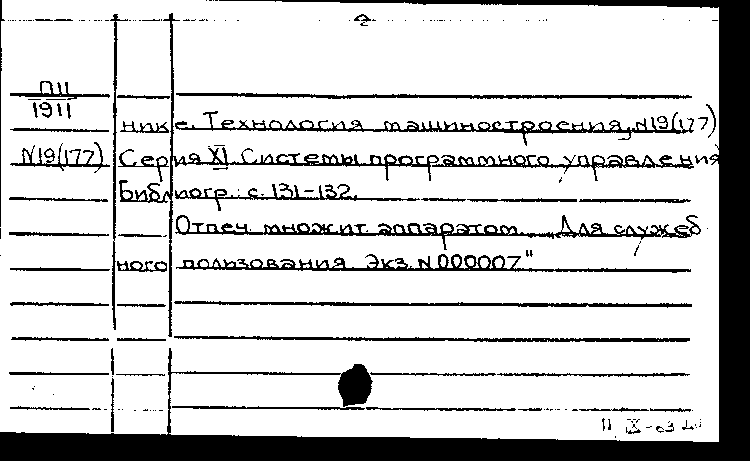 2
П11
1911
нике. Технология машиностроения, N19(177)
N19(177) Серия XI. Системы программного управления
Библиогр.: с. 131-132.
Отпеч. множит. аппаратом. „Для служеб
ного пользования. Экз. N 000007"
11 IX-63